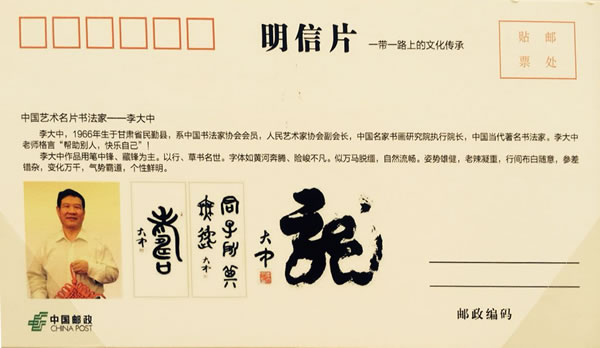 明信片 一带一路上的文化传承
贴 邮
票 处
中国艺术名片书法家——李大中
李大中，1966年生于甘肃省民勤县，系中国书法家协会会员，人民艺术家协会副会长，中国名家书画研究院执行院长，中国当代著名书法家。李大中
老师格言“帮助别人，快乐自己”！
李大中作品用笔中锋、藏锋为主。以行、草书名世。字体如黄河奔腾、睑峻不凡。似万马脱缰，自然流畅。姿势雄健，老辣凝重，行间布白随意，参差
错杂，变化万千，气势霸道，个性鲜明。
大中
大中
龍
大中
中国邮政
CHINA POST
邮政编码